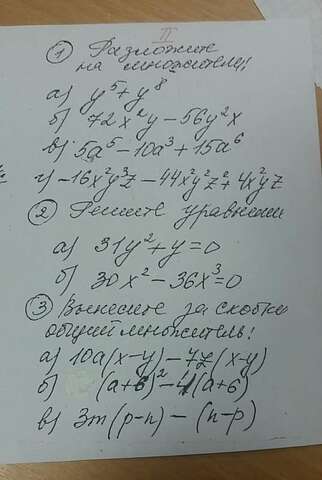 II
① Разложите
на множители!
а) y⁵+y⁸
б) 72x²y – 56y²x
в) 5a⁵ – 10a³ + 15a⁶
г) –16x²y³z – 44x²y²z² + 4x²yz
② Решите уравнения
а) 31y²+y=0
б) 30x² – 36x³=0
③ Вынесите за скобки
общий множитель!
а) 10a(x–y) – 7z(x–y)
б) (a+6)² – 4(a+6)
в) 3m(p–n) – (n–p)